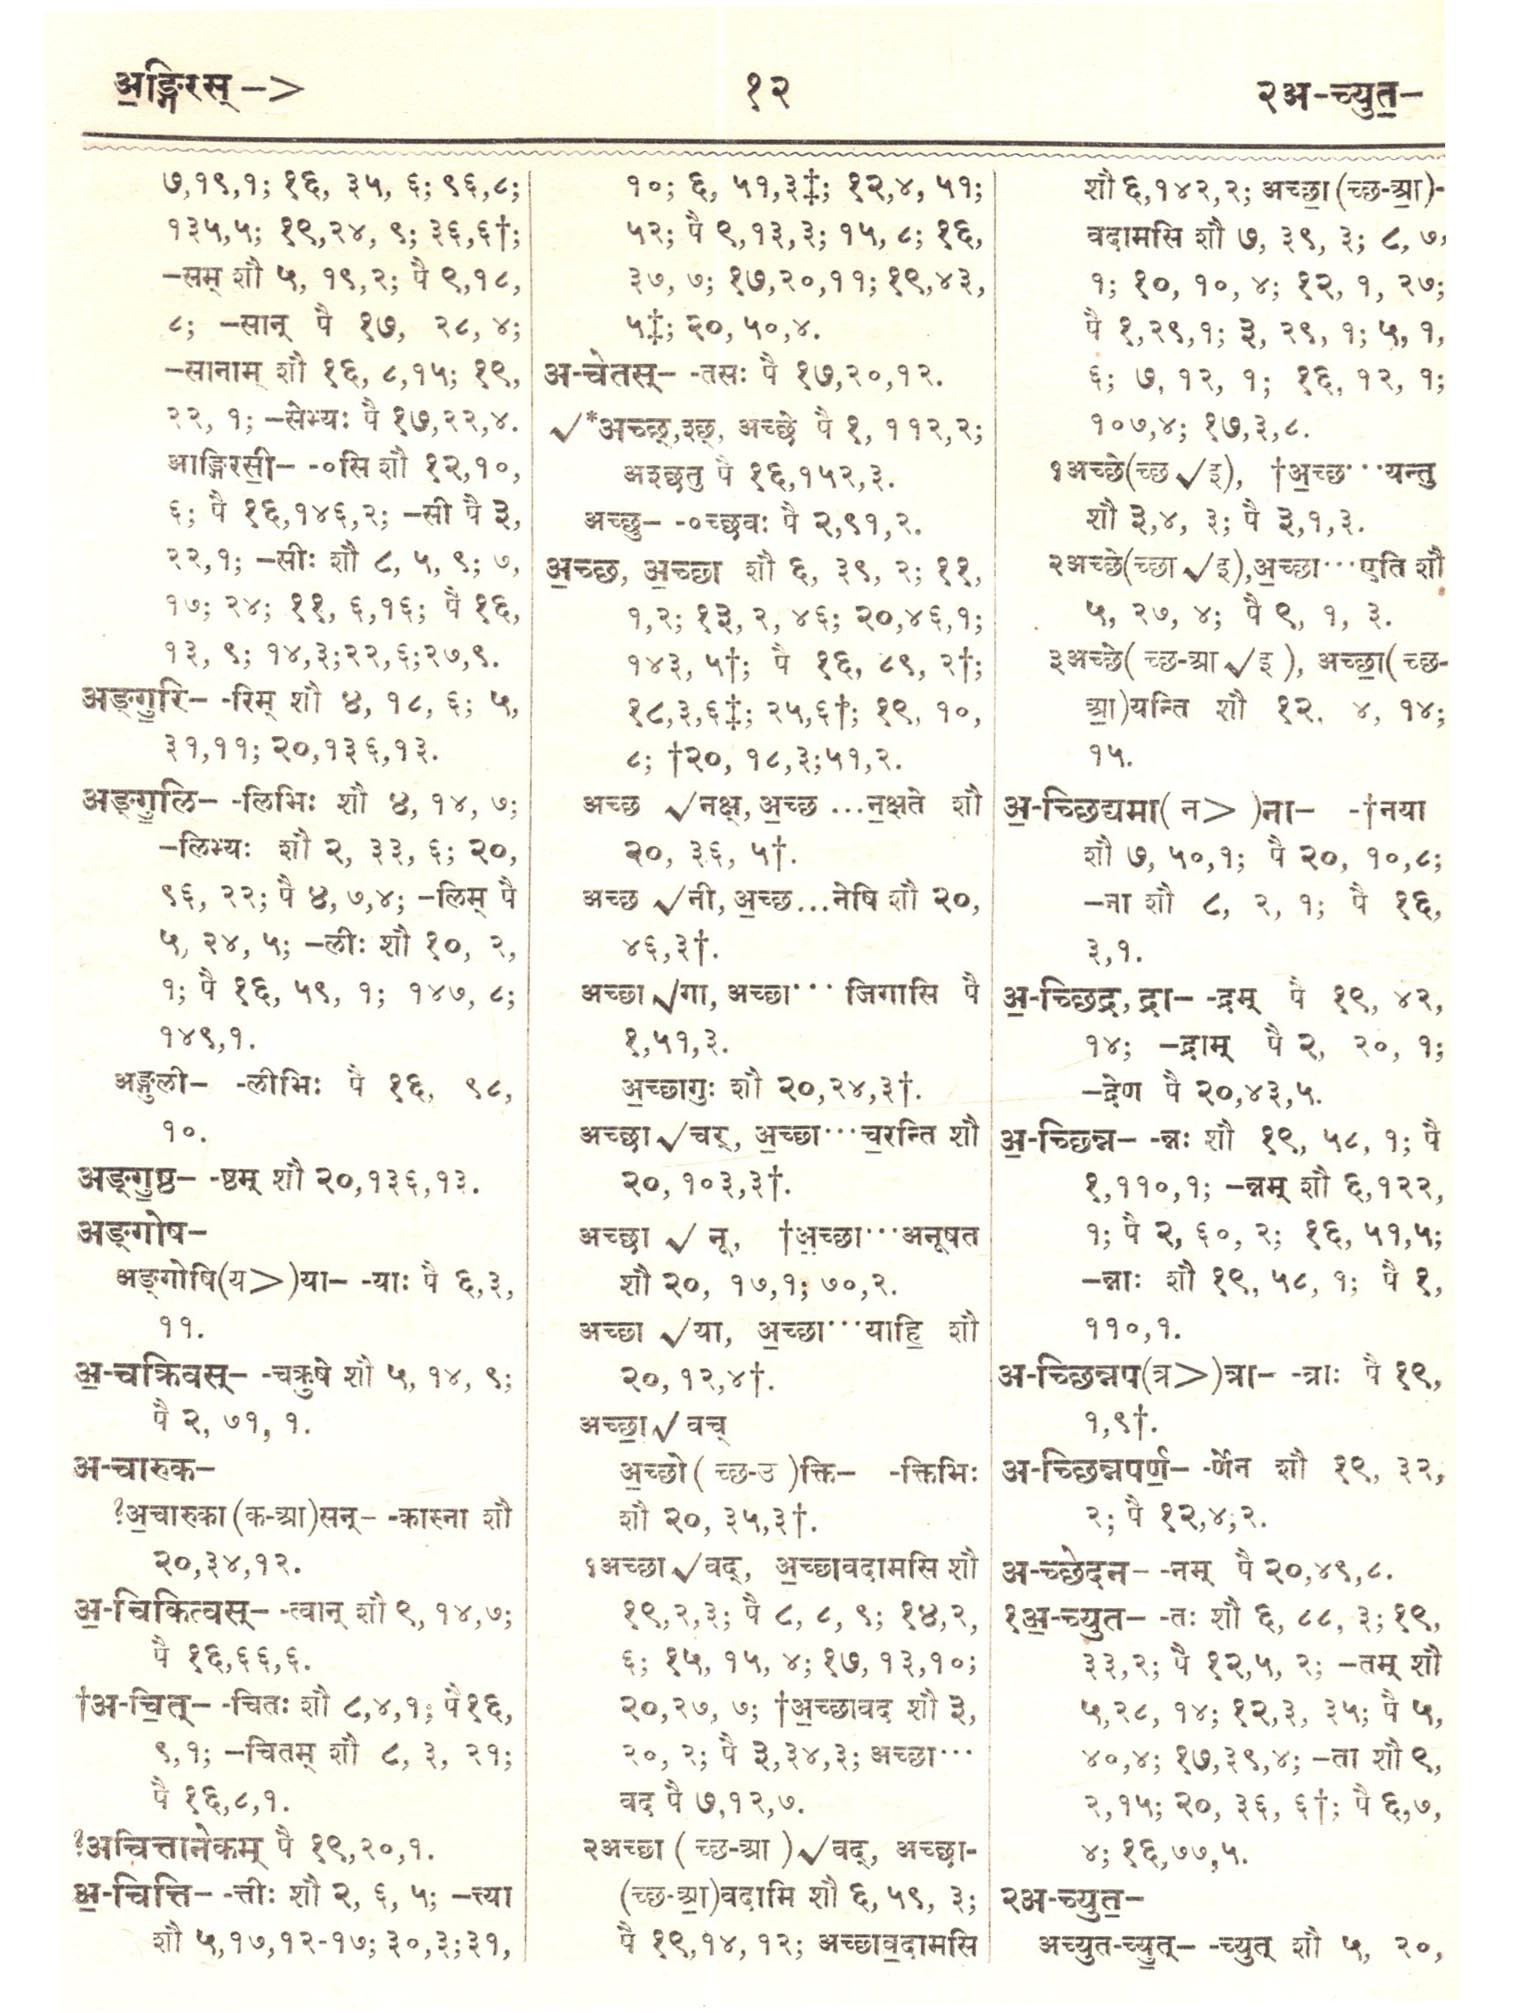 अ॒ङ्गिरस्->
१२
२अ-च्युत॒-
७,१९,१; १६, ३५, ६; ९६,८;
१३५,५; १९,२४, ९; ३६,६†;
-सम् शौ ५, १९,२; पै ९,१८,
८; -सान् पै १७, २८,४;
-सानाम् शौ १६, ८,१५; १९,
२२, १; -सेभ्यः पै १७,२२,४.
आङ्गिरसी॒- -०सि शौ १२,१०,
६; पै १६,१४६,२; -सी पै ३,
२२,१; -सीः शौ ८, ५, ९; ७,
१७; २४; ११, ६,१६; पै १६,
१३, ९; १४,३;२२,६;२७,९.
अङ्गु॒रि- -रिम् शौ ४, १८, ६; ५,
३१,११; २०,१३६,१३.
अङ्गु॒लि- -लिभिः शौ ४, १४, ७;
-लिभ्यः शौ २, ३३, ६; २०,
९६, २२; पै ४, ७,४; -लिम् पै
५, २४, ५; -लीः शौ १०, २,
१; पै १६, ५९, १; १४७, ८;
१४९,१.
अङ्गुली- -लीभिः पै १६, ९८,
१०.
अङ्गु॒ष्ठ- -ष्ठम् शौ २०,१३६,१३.
अङ्गोष-
अङ्गोषि(य>)या- -याः पै ६,३,
११.
अ॒-चक्रिवस्- -चक्रुषे शौ ५, १४, ९;
पै २, ७१, १.
अ-चारुक-
?अ॒चारुका(क-आ)सन्- -कास्ना शौ
२०,३४,१२.
अ॒-चिकित्वस्- -त्वान् शौ ९, १४,७;
पै १६,६६,६.
†अ-चि॒त्- -चितः शौ ८,४,१; पै १६,
९,१; -चितम् शौ ८, ३, २१;
पै १६,८,१.
?अचित्तानेकम् पै १९,२०,१.
अ॒-चित्ति- -त्तीः शौ २, ६, ५; -त्त्या
शौ ५,१७,१२-१७; ३०,३;३१,
१०; ६, ५१,३‡; १२,४, ५१;
५२; पै ९,१३,३; १५, ८; १६,
३७, ७; १७,२०,११; १९,४३,
५‡; २०, ५०,४.
अ-चेतस्- -तसः पै १७,२०,१२.
√*अच्छ्,श्छ्, अच्छे पै १, ११२,२;
अश्छतु पै १६,१५२,३.
अच्छु- -०च्छवः पै २,९१,२.
अ॒च्छ, अ॒च्छा शौ ६, ३९, २; ११,
१,२; १३, २, ४६; २०,४६,१;
१४३, ५†; पै १६, ८९, २†;
१८,३,६‡; २५,६†; १९, १०,
८; †२०, १८,३;५१,२.
अच्छ √नक्ष्, अ॒च्छ ...न॒क्षते शौ
२०, ३६, ५†.
अच्छ √नी, अ॒च्छ...नेषि शौ २०,
४६,३†.
अच्छा √गा, अच्छा... जिगासि पै
१,५१,३.
अ॒च्छागुः शौ २०,२४,३†.
अच्छा √चर्, अ॒च्छा...च॒रन्ति शौ
२०, १०३,३†.
अच्छा √ नू, †अ॒च्छा...अनूषत
शौ २०, १७,१; ७०,२.
अच्छा √या, अ॒च्छा...याहि॒ शौ
२०,१२,४†.
अच्छा॒ √ वच्
अ॒च्छो ( च्छ-उ )क्ति- -क्तिभिः
शौ २०, ३५,३†.
१अच्छा √वद्, अ॒च्छावदामसि शौ
१९,२,३; पै ८, ८, ९; १४,२,
६; १५, १५, ४; १७, १३,१०;
२०,२७, ७; †अ॒च्छावद शौ ३,
२०, २; पै ३,३४,३; अच्छा...
वद पै ७,१२,७.
२अच्छा ( च्छ-आ )√वद्, अच्छा-
(च्छ-आ॒)वदामि शौ ६, ५९, ३;
पै १९,१४, १२; अच्छाव॒दामसि
शौ ६,१४२,२; अच्छा॒ (च्छ-आ॒)-
वदामसि शौ ७, ३९, ३; ८, ७,
१; १०, १०, ४; १२, १, २७;
पै १,२९,१; ३, २९, १; ५, १,
६; ७, १२, १; १६, १२, १;
१०७,४; १७,३,८.
१अच्छे(च्छ √इ), †अ॒च्छ...यन्तु
शौ ३,४, ३; पै ३,१,३.
२अच्छे(च्छा √इ),अ॒च्छा...एति शौ
५, २७, ४; पै ९, १, ३.
३अच्छे( च्छ-आ √इ ), अच्छा॒( च्छ-
आ॒)यन्ति शौ १२. ४, १४;
१५.
अ॒-च्छिद्यमा( न> )ना- -†नया
शौ ७, ५०,१; पै २०, १०,८;
-ना शौ ८, २, १; पै १६,
३,१.
अ॒-च्छिद्र, द्रा- -द्रम् पै १९, ४२,
१४; -द्राम् पै २, २०, १;
-द्रेण पै २०,४३,५.
अ॒-च्छिन्न- -न्नः शौ १९, ५८, १; पै
१,११०,१; -न्नम् शौ ६,१२२,
१; पै २, ६०, २; १६, ५१,५;
-न्नाः शौ १९, ५८, १; पै १,
११०,१.
अ-च्छिन्नप(त्र>)त्रा- -त्राः पै १९,
१,९†.
अ-च्छिन्नपर्ण॒- -र्णेन शौ १९, ३२,
२; पै १२,४,२.
अ-च्छेदन- -नम् पै २०,४९,८.
१अ॒-च्युत- -तः शौ ६, ८८, ३; १९,
३३,२; पै १२,५, २; -तम् शौ
५,२८, १४; १२,३, ३५; पै ५,
४०,४; १७,३९,४; -ता शौ ९,
२,१५; २०, ३६, ६†; पै ६,७,
४; १६,७७,५.
२अ-च्युत॒-
अच्युत-च्यु॒त्- -च्युत् शौ ५, २०,